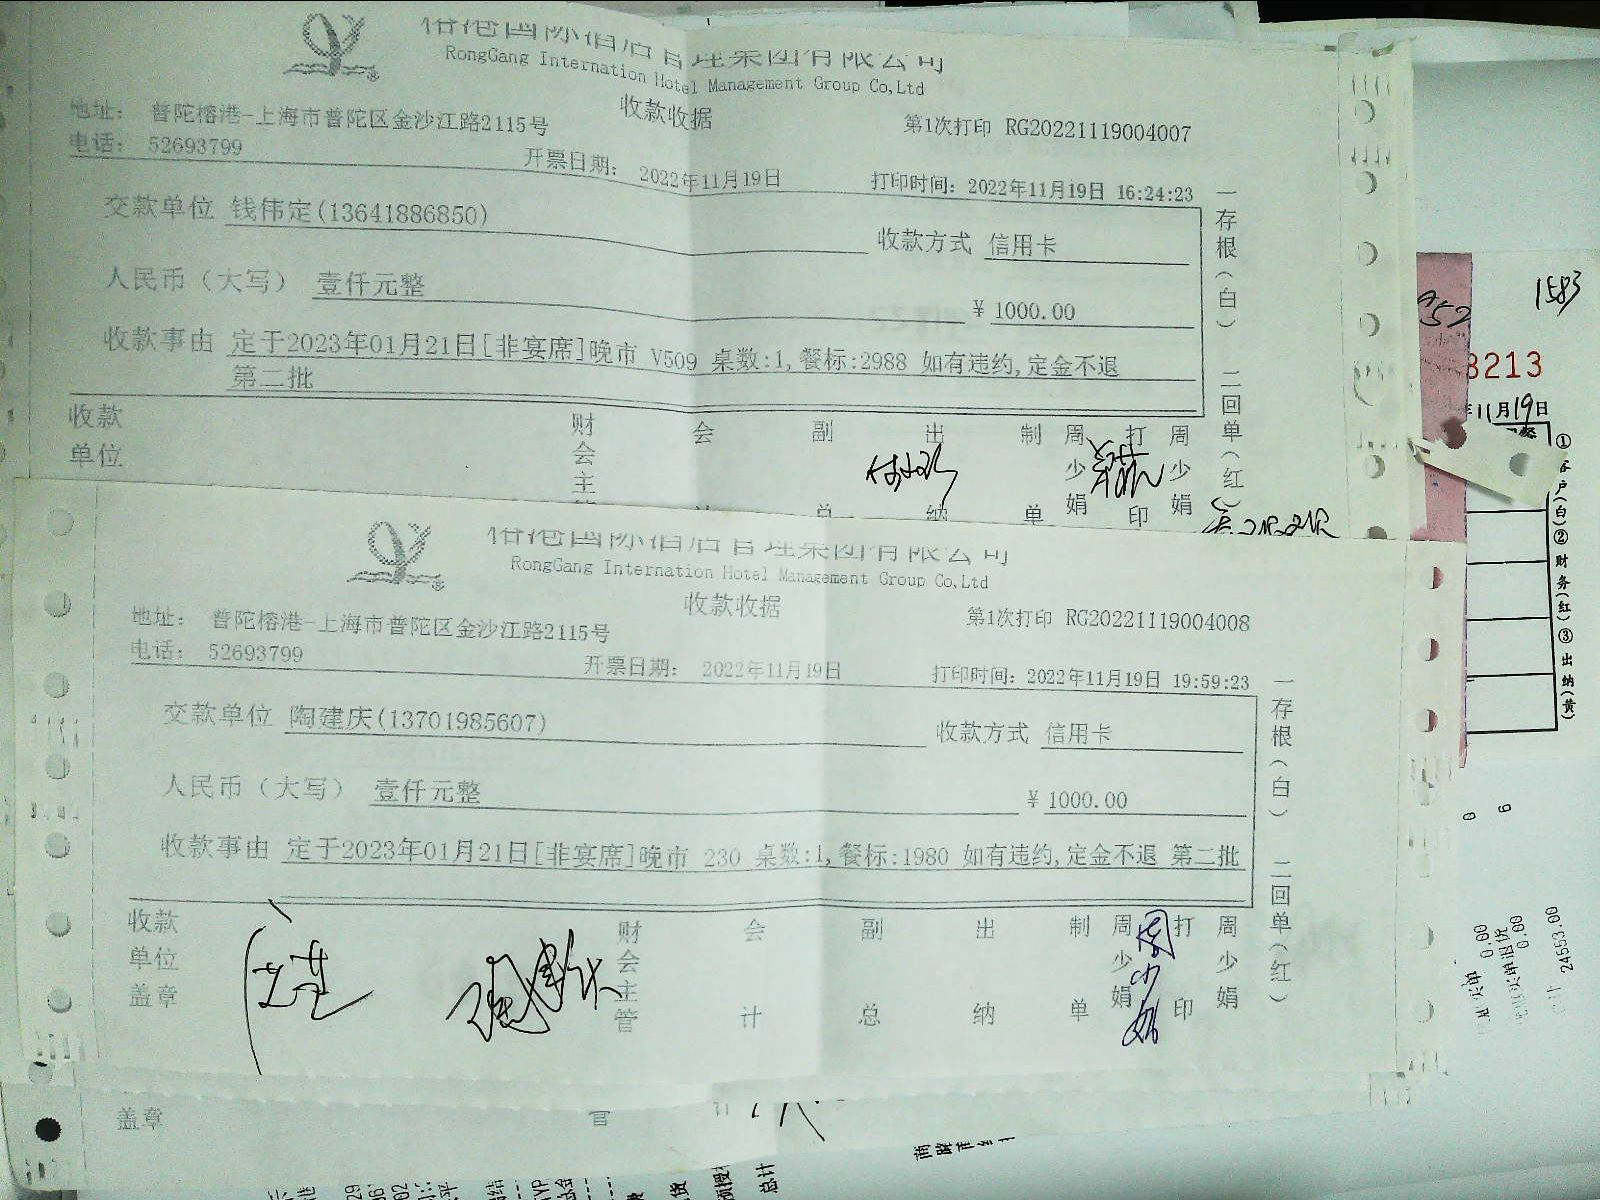 榕港国际酒店管理集团有限公司
RongGang Internation Hotel Management Group Co,Ltd
收款收据
地址： 普陀榕港-上海市普陀区金沙江路2115号
第1次打印 RG20221119004007
电话： 52693799
开票日期： 2022年11月19日
打印时间：2022年11月19日 16:24:23
交款单位 钱伟定(13641886850)
收款方式 信用卡
人民币（大写） 壹仟元整
¥ 1000.00
收款事由 定于2023年01月21日[非宴席]晚市 V509 桌数:1,餐标:2988 如有违约,定金不退
第二批
一存根(白) 二回单(红)
收款单位
财会主
会
副
出纳
制单
周少娟
打印
周少娟
榕港国际酒店管理集团有限公司
RongGang Internation Hotel Management Group Co,Ltd
收款收据
地址： 普陀榕港-上海市普陀区金沙江路2115号
第1次打印 RG20221119004008
电话： 52693799
开票日期： 2022年11月19日
打印时间：2022年11月19日 19:59:23
交款单位 陶建庆(13701985607)
收款方式 信用卡
人民币（大写） 壹仟元整
¥ 1000.00
收款事由 定于2023年01月21日[非宴席]晚市 230 桌数:1,餐标:1980 如有违约,定金不退 第二批
一存根(白) 二回单(红)
收款单位盖章
财会主管
会计
副总
出纳
制单
周少娟
周少娟
打印
周少娟
盖章
1583
A52
3213
年11月19日
①客户(白)②财务(红)③出纳(黄)
0.00
0.00
24553.00
总计